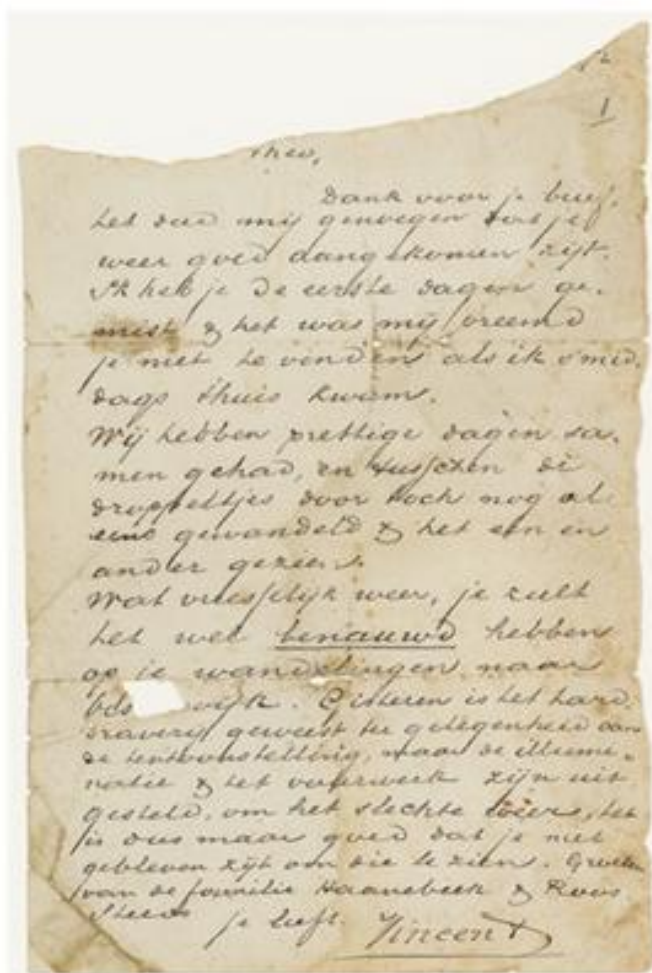 1
Theo,
Dank voor je brief,
het deed mij genoegen dat je
weer goed aangekomen zijt.
Ik heb je de eerste dagen ge-
mist & het was mij vreemd
je niet te vinden als ik s'mid-
dags thuis kwam.
Wij hebben prettige dagen sa-
men gehad, en tusschen de
droppeltjes door toch nog al
eens gewandeld & het een en
ander gezien.
Wat vreesselijk weer, je zult
het wel benauwd hebben
op je wandelingen naar
wijk. Gisteren is het hard-
draverij geweest ter gelegenheid van
de tentoonstelling, maar de illumi-
natie & het vuurwerk zijn uit
gesteld, om het slechte weer, het
is dus maar goed dat je niet
gebleven zijt om die te zien. Groeten
van de familie Haanebeek & Roos.
Steeds
je liefh. Vincent